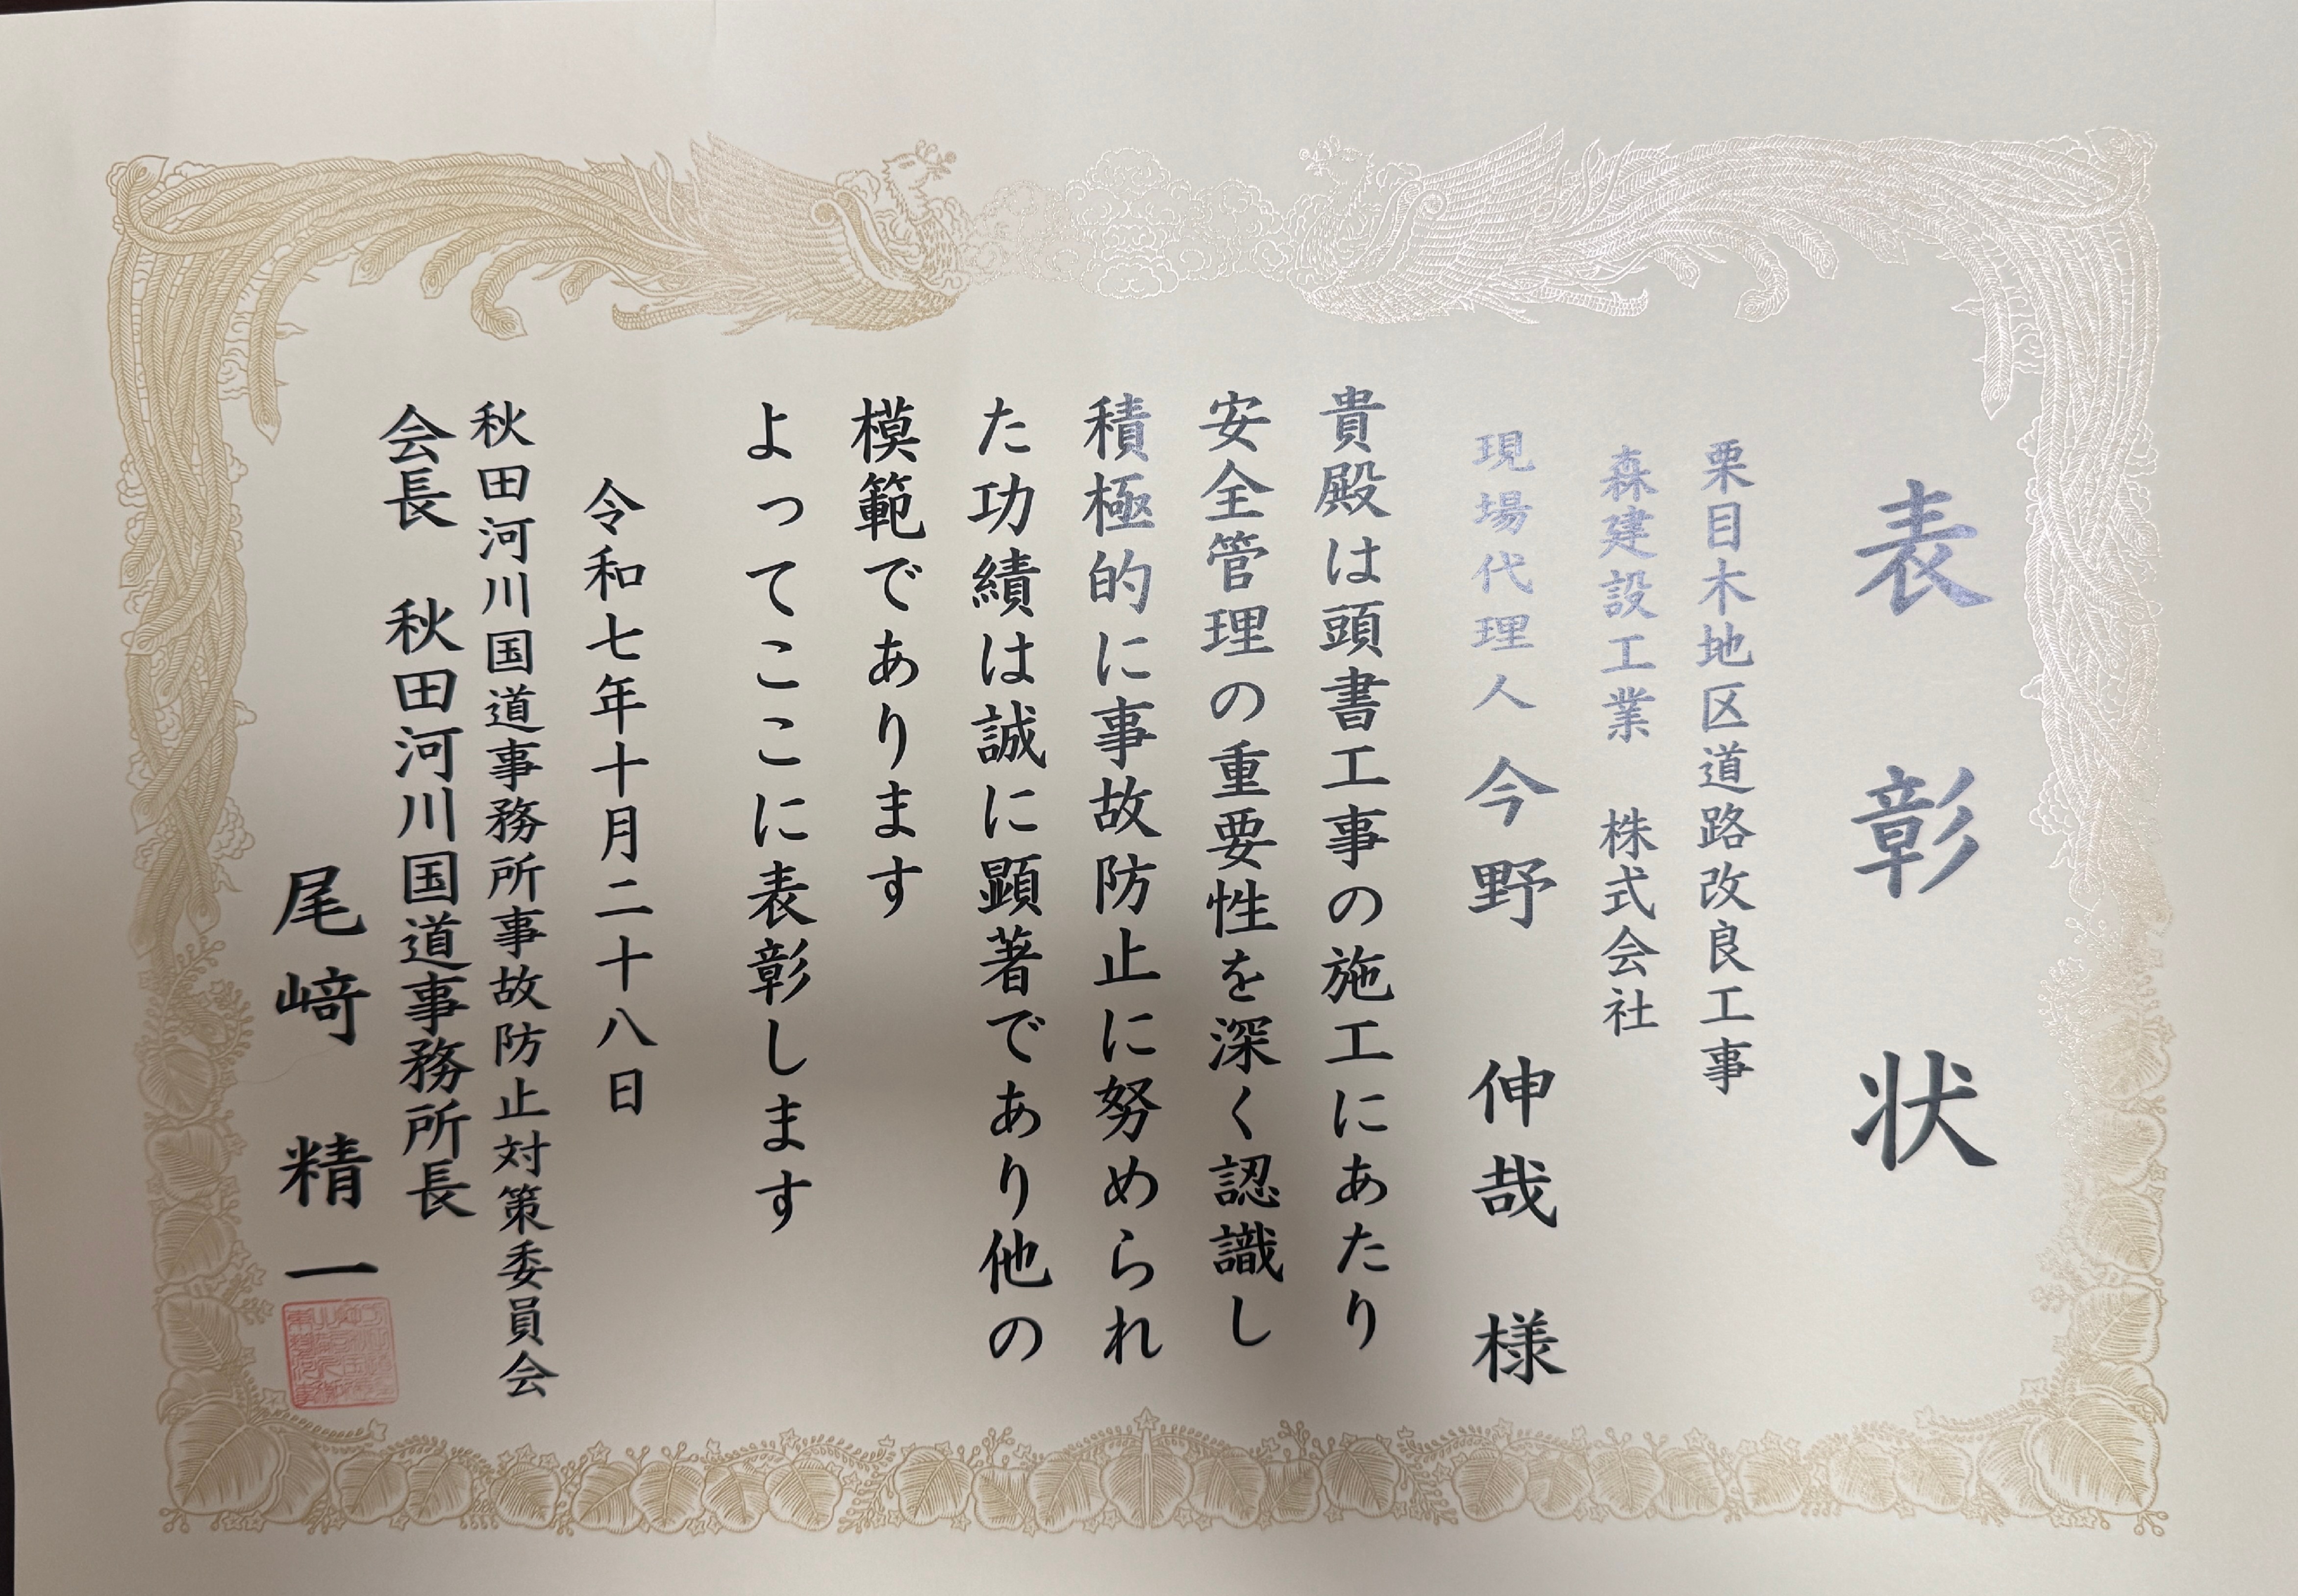 表彰状
栗目木地区道路改良工事
森建設工業　株式会社
現場代理人 今野　伸哉　様
貴殿は頭書工事の施工にあたり
安全管理の重要性を深く認識し
積極的に事故防止に努められ
た功績は誠に顕著であり他の
模範であります
よってここに表彰します
令和七年十月二十八日
秋田河川国道事務所事故防止対策委員会
会長　秋田河川国道事務所長
尾﨑　精一